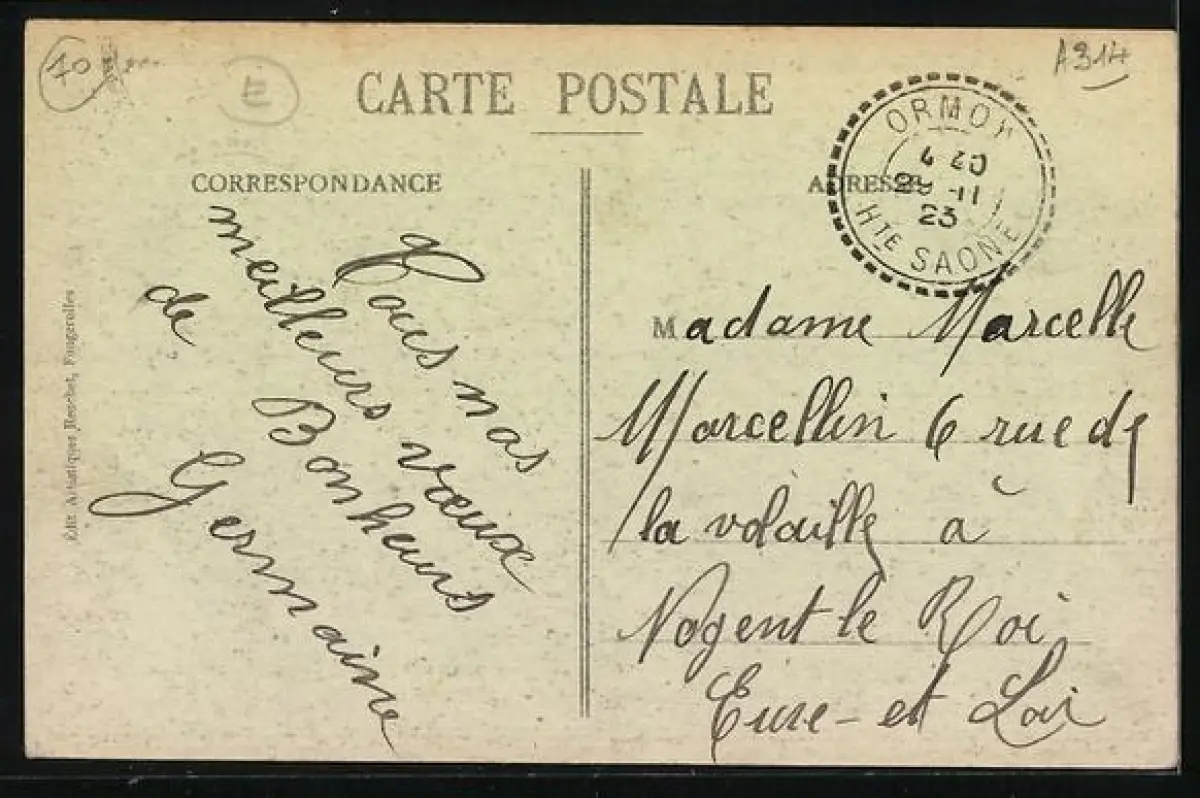 10
E
A314
CARTE POSTALE
CORRESPONDANCE
ADRESSE
ORMOY
20
29 - 11
23
HTE SAONE
Tous nos
meilleurs vœux
de Bonheurs
Germaine
Madame Marcelle
Marcellin 6 rue de
la volaille à
Nogent le Roi,
Eure - et Loir
Édit. Artistiques Reuchet, Fougerolles